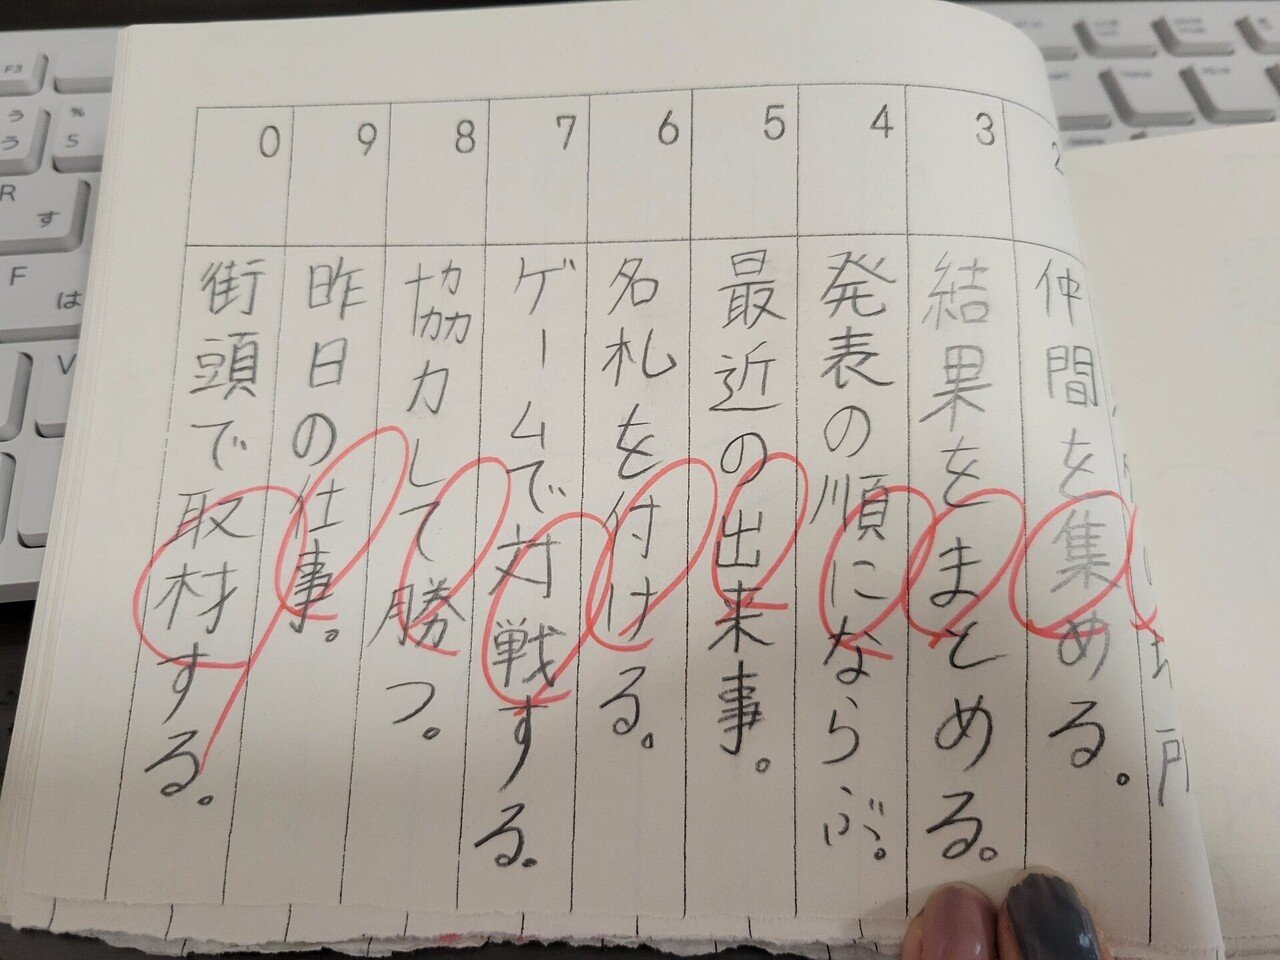 2 仲間を集める。
3 結果をまとめる。
4 発表の順にならぶ。
5 最近の出来事。
6 名札を付ける。
7 ゲームで対戦する。
8 協力して勝つ。
9 昨日の仕事。
0 街頭で取材する。
F3
う
う
%
5
R
す
F
は
V